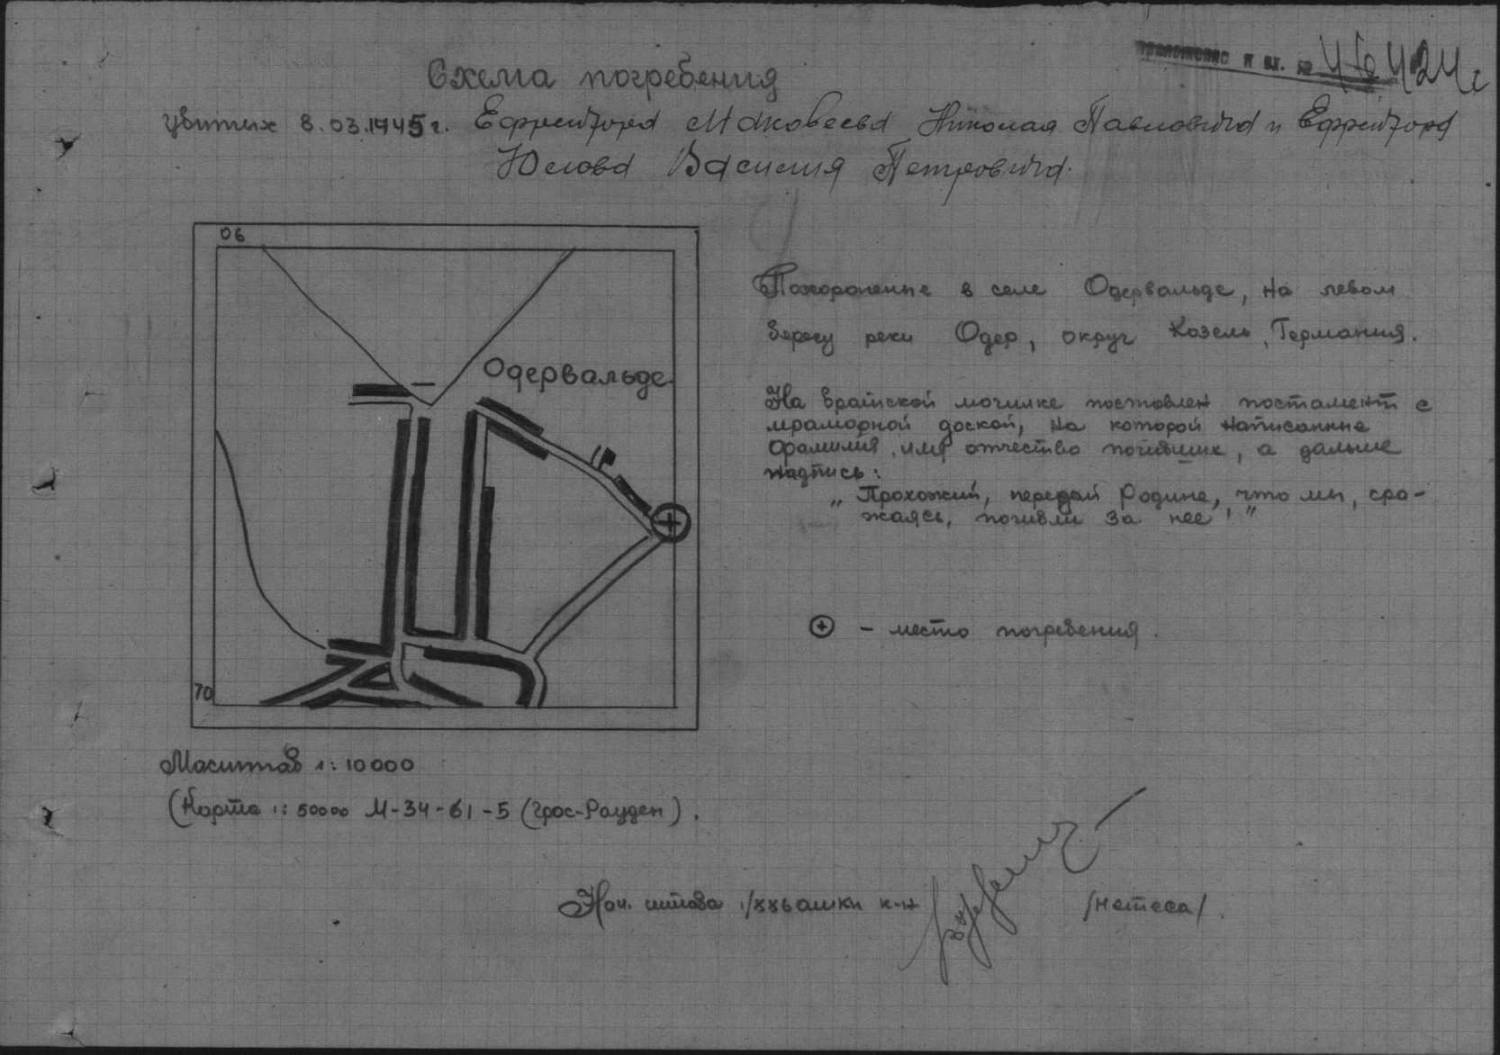 приложение к вх. №
Схема погребения
убитых 8.03.1945г. Ефрейтора Маковеева Николая Павловича и Ефрейтора
Юлова Василия Петровича.
06
Одервальде
70
Похоронены в селе Одервальде, на левом
берегу реки Одер, округ Козель, Германия.
На братской могилке поставлен постамент с
мраморной доской, на которой написанные
фамилия, имя, отчество погибших, а дальше
надпись:
„ Прохожий, передай Родине, что мы, сра-
жаясь, погибли за нее! ”
– место погребения.
Масштаб 1:10000
(Карта 1:50000 М-34-61-5 (Грос-Рауден).
Нач. штаба к-н /Нетеса/.